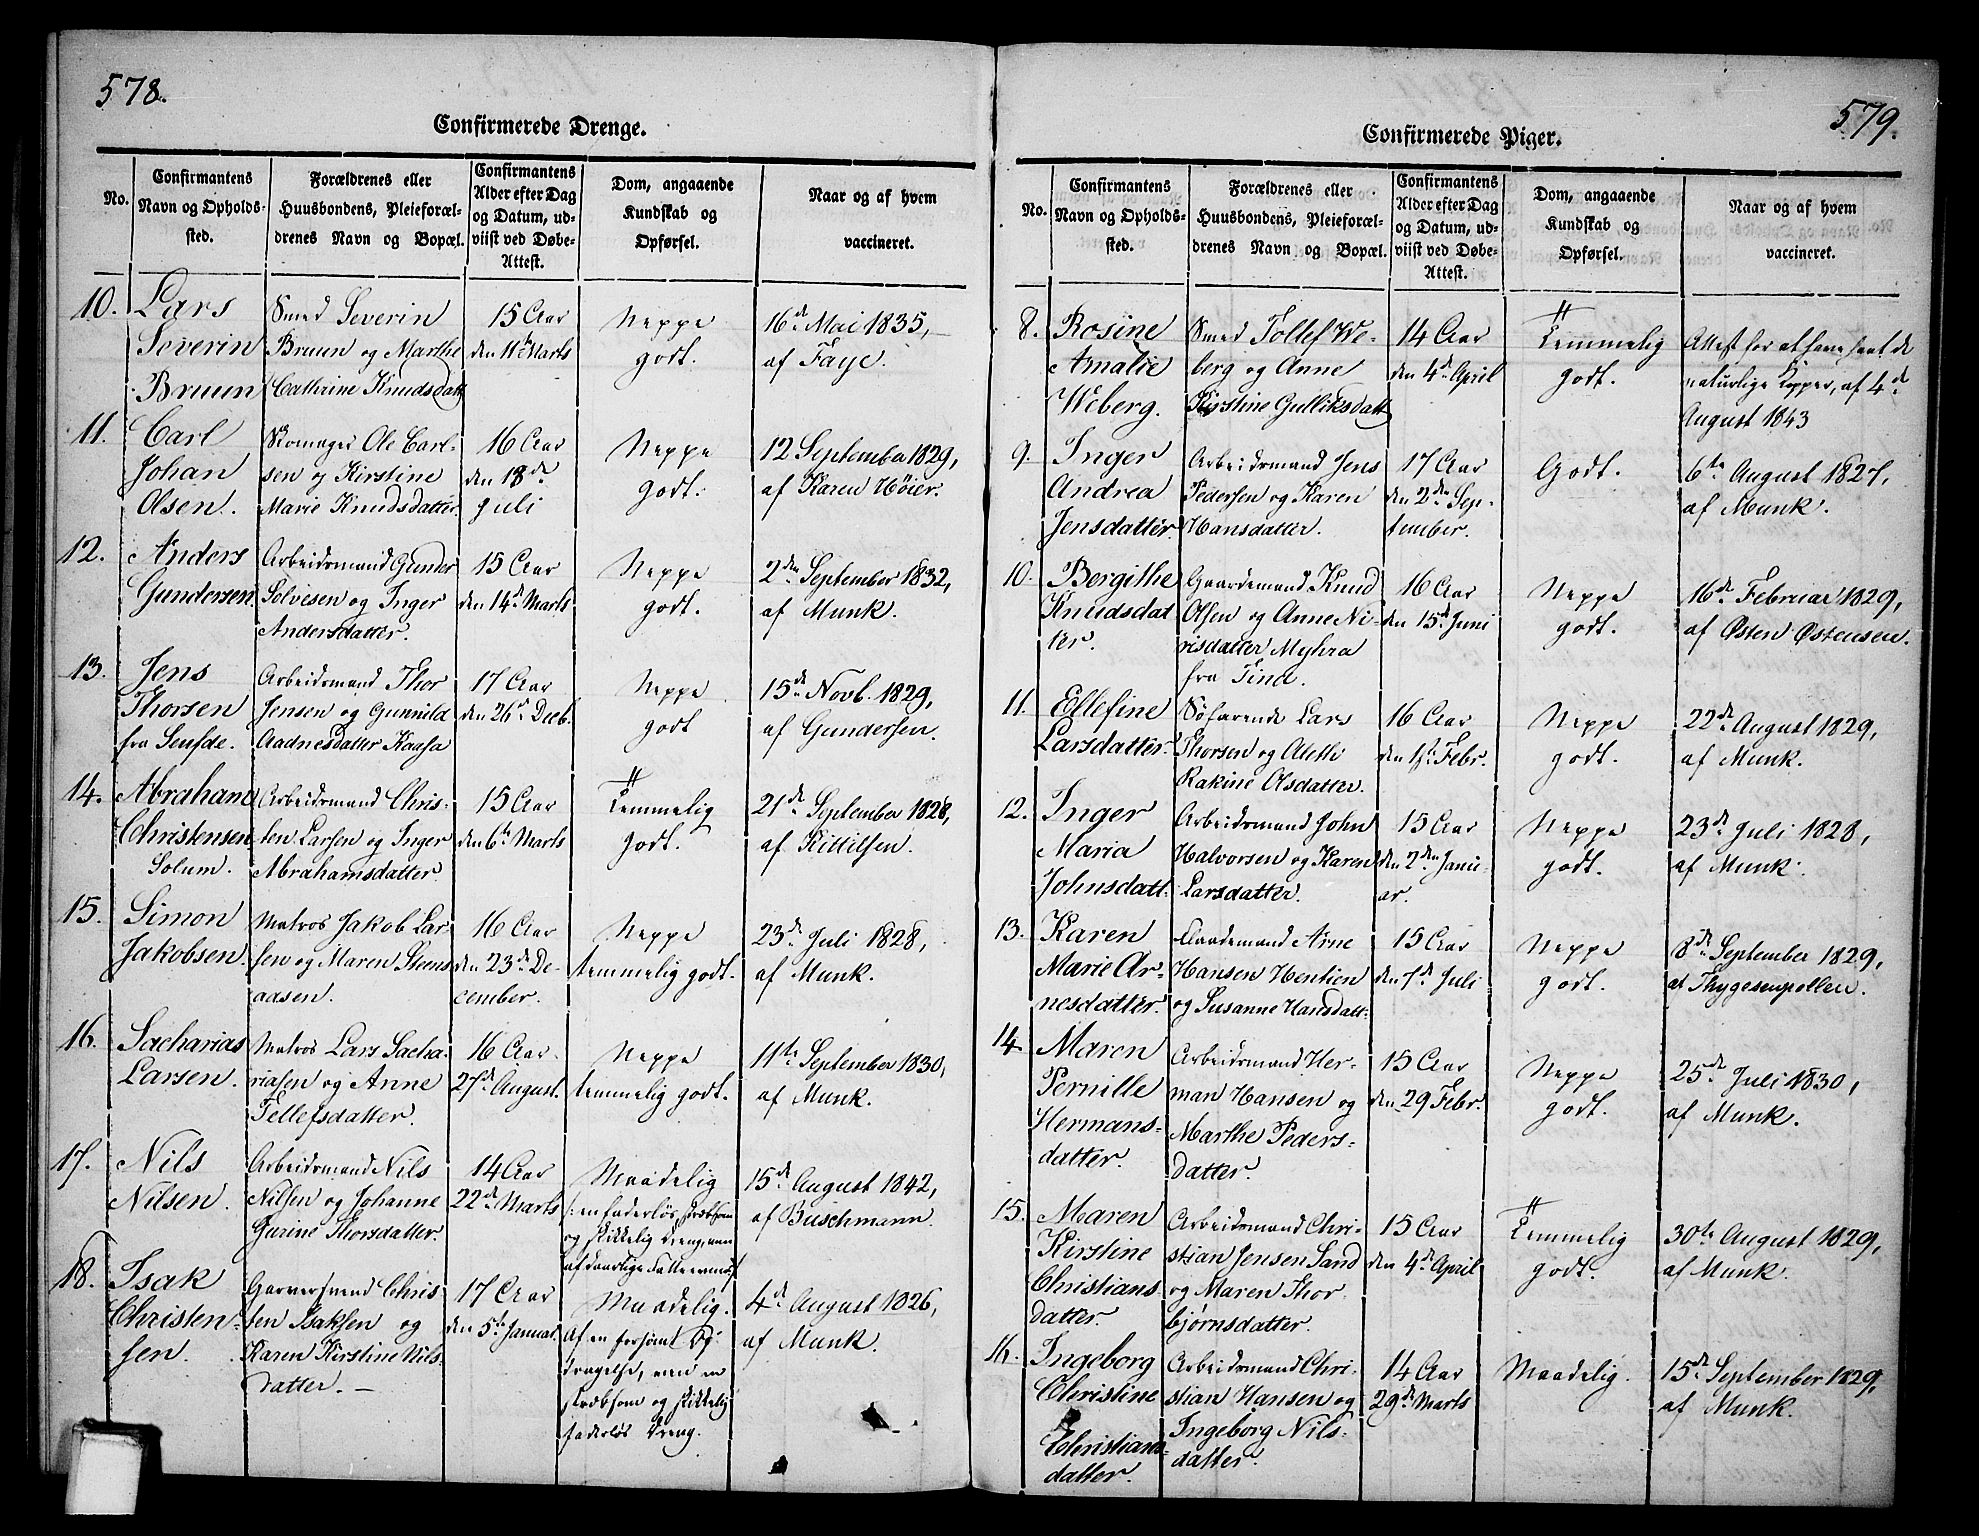 578.
Confirmerede Drenge.
No. | Confirmantens Navn og Opholdssted. | Forældrenes eller Huusbondens, Pleieforældrenes Navn og Bopæl. | Confirmantens Alder efter Dag og Datum, udviist ved Døbe-Attest. | Dom, angaaende Kundskab og Opførsel. | Naar og af hvem vaccineret.
10. Lars | Smed Severin | 15 Aar | Neppe | 16de Mai 1835,
Severin | Bruun og Marthe | den 11te Marts | godt. | af Faye.
Bruun | Cathrine Knudsdatt
11. Carl | Skomager Ole Carl- | 16 Aar | Neppe | 12 September 1829,
Johan | sen og Kirstine | den 18de | godt. | af Karen Høier.
Olsen. | Marie Knudsdatter | Juli
12. Anders | Arbeidsmand Gunder | 15 Aar | Neppe | 2den September 1832,
Gundersen | Solvesen og Inger | den 14de Marts | godt. | af Munk.
Andersdatter.
13. Jens | Arbeidsmand Thor | 17 Aar | Neppe | 15de Novb. 1829,
Thorsen | Jensen og Gunnild | den 26de Decb. | godt | af Gundersen.
fra | Aadnesdatter Kaasa
14. Abraham | Arbeidsmand Chris- | 15 Aar | Temmelig | 21de September 1828,
Christensen | ten Larsen og Inger | den 6te Marts | godt. | af Kittilsen.
Solum. | Abrahamsdatter.
15. Simon | Matros Jakob Lar- | 16 Aar | Neppe | 23de Juli 1828,
Jakobsen | sen og Maren Steens | den 23de De- | temmelig godt. | af Munk.
aasen. | cember.
16. Sacharias | Matros Lars Sacha- | 16 Aar. | Neppe | 11te September 1830,
Larsen. | riasen og Anne | 27de August. | temmelig godt. | af Munk.
Tellefsdatter.
17. Nils | Arbeidsmand Nils | 14 Aar | Maadelig | 15de August 1842,
Nilsen. | Nilsen og Johanne | 22de Marts | /: en faderløs, stræbsom | af Buschmann.
Gurine Thorsdatter. | og skikkelig Dreng, men
af daarlige
18. Isak | Garversvend Chris- | 17 Aar | Maadelig. | 4de August 1826,
Christen- | ten Isaksen og | den 5te Januar. | Af en forsømt Op- | af Munk.
sen. | Karen Kirstine Nils- | dragelse, men en
datter. — | stræbsom og skikkelig
faderløs Dreng.
579.
Confirmerede Piger.
No. | Confirmantens Navn og Opholdssted. | Forældrenes eller Huusbondens, Pleieforældrenes Navn og Bopæl. | Confirmantens Alder efter Dag og Datum, udviist ved Døbe-Attest. | Dom, angaaende Kundskab og Opførsel. | Naar og af hvem vaccineret.
8. Rosine | Smed Tollef We- | 14 Aar | Temmelig | Attest for at have havt de
Amalie | berg og Anne | den 4de April | godt. | naturlige Kopper, af 4de
Weberg. | Kirstine Gulliksdatt | August 1843
9. Inger | Arbeidsmand Jens | 17 Aar | Godt. | 6te August 1827,
Andrea | Pedersen og Karen | den 2den Sep- | af Munk.
Jensdatter. | Hansdatter. | tember.
10. Bergithe | Gaardemand Knud | 16 Aar | Neppe | 16de Februar 1829,
Knudsdat | Olsen og Anne Ni- | den 15de Juni | godt. | af Østen Østensen.
ter. | risdatter Myhra
fra Tind.
11. Ellefine | Søfarende Lars | 16 Aar | Neppe | 22de August 1829,
Larsdatter. | Thorsen og Alethe | den 1ste Febr. | godt. | af Munk.
Rakine Olsdatter.
12. Inger | Arbeidsmand John | 15 Aar | Neppe | 23de Juli 1828,
Maria | Halvorsen og Karen | den 2den Janu- | godt. | af Munk.
Johnsdatt. | Larsdatter. | ar.
13. Karen | Gaardemand Arne | 15 Aar | Neppe | 8de September 1829,
Marie Ar- | Hansen Hentien | den 7de Juli | godt. | af Thygesenpollen.
nesdatter. | og Susanne Hansdatt.
14. Maren | Arbeidsmand Her- | 15 Aar | Neppe | 25de Juli 1830,
Pernille | man Hansen og | den 29 Febr. | godt. | af Munk.
Hermans- | Marthe Peders-
datter. | datter.
15. Maren | Arbeidsmand Chri- | 15 Aar | Temmelig | 30te August 1829,
Kirstine | stian Jensen Sand | den 4de April | godt. | af Munk.
Christians | og Maren Thor
datter. | bjørnsdatter.
16. Ingeborg | Arbeidsmand Chri- | 14 Aar | Maadelig. | 15de September 1829,
Christine | stian Hansen og | 29de Marts | af Munk.
Christians- | Ingeborg Nils-
datter. | datter.